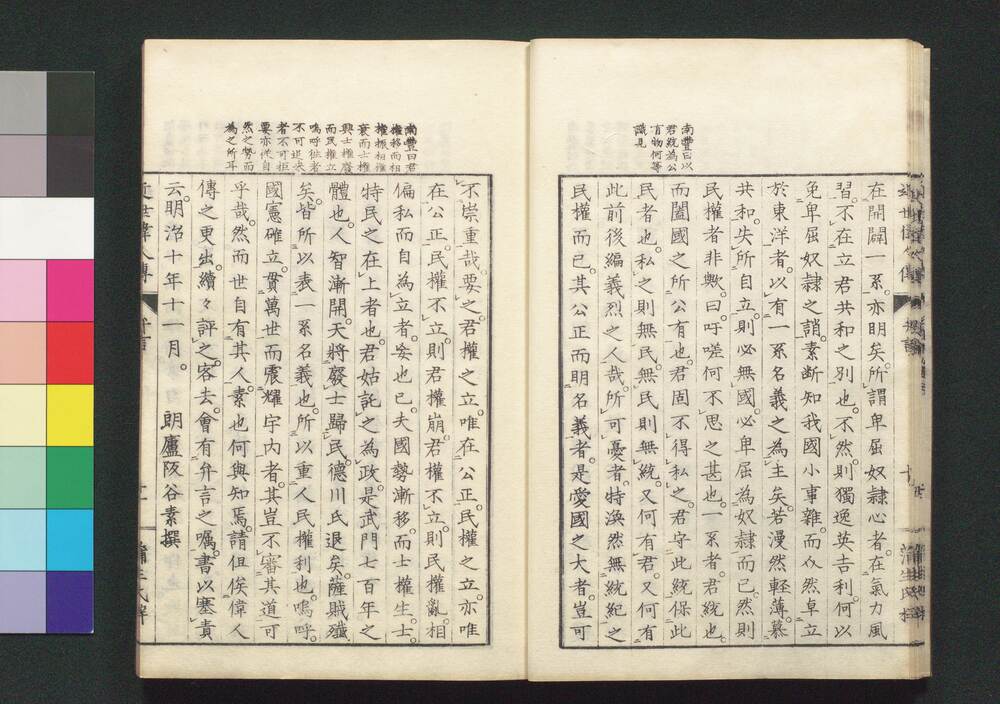 南豐曰以
君統為公
有物何等
識見
在開闢一系。亦明矣。所謂卑屈奴隷心者。在氣力風
習。不在立君共和之別也。不然。則獨逸英吉利。何以
免卑屈奴隷之誚。素断知我國小事雜。而必然卓立
於東洋者。以有一系名義之為主矣。若漫然輕薄。慕
共和。失所自立。則必無國。必卑屈為奴隷而已。然則
民權者非歟。曰。吁嗟何不思之甚也。一系者。君統也。
而闔國之所公有也。君固不得私之。君守此統。保此
民者也。私之則無民。無民則無統。又何有君。又何有
此前後編義烈之人哉。所可憂者。特渙然無統紀之
民權而已。其公正而明名義者。是愛國之大者。豈可
南豐曰君
權移而相
權振相權
衰而士權
興士權廢
而民權立
嗚呼徃者
不可追来
者不可拒
要亦從自
然之勢而
為之所耳
不崇重哉。要之。君權之立。唯在公正。民權之立。亦唯
在公正。民權不立。則君權崩。君權不立。則民權亂。相
偏私而自為立者。妄也已。夫國勢漸移。而士權生。士
特民之在上者也。君姑託之為政。是武門七百年之
體也。人智漸開。天將廢士歸民。德川氏退矣。薩賊殲
矣。皆所以表一系名義也。所以重人民權利也。嗚呼。
國憲確立。貫萬世而震耀宇内者。其豈不審其道可
乎哉。然而世自有其人。素也何與知焉。請但俟偉人
傳之更出。續々評之。客去。會有弁言之囑。書以塞責
云。明治十年十一月。
朗廬阪谷素撰